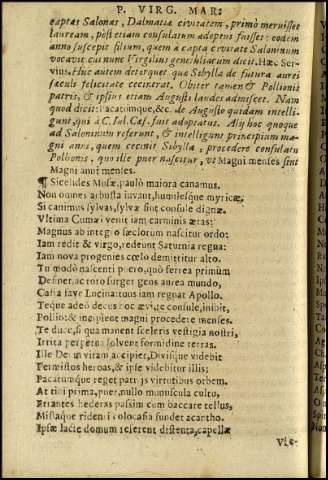 P. VIRG. MAR:
captas Salonas, Dalmatiæ civitatem, primò meruisset
lauream, post etiam consulatum adeptus fuisset: eodem
anno suscepit filium, quem à capta civitate Saloninum
vocavit cui nunc Virgilius genethliacum dicit. Hæc Ser-
vius. Huc autem detorquet quæ Sibylla de futura aurei
sæculi felicitate cecinerat. Obiter tamen & Pollionis
patris, & ipsius etiam Augusti laudes admiscet. Nam
quod dicit: Pacatumque, &c. de Augusto quidam intelli-
gunt, qui à C. Iul. Cæs. fuit adoptatus. Alij hoc quoque
ad Saloninum referunt, & intelligunt principium ma-
gni anni, quem cecinit Sibylla, procedere consulatu
Pollionis, quo ille puer nascitur, vt Magni menses sint
Magni anni menses.
¶ Sicelides Musæ, paulò maiora canamus.
Non omnes arbusta iuvant, humilesque myricæ,
Si canimus sylvas, sylvæ sint consule dignæ.
Vltima Cumæi venit iam carminis ætas:
Magnus ab integro sæclorum nascitur ordo:
Iam redit & virgo, redeunt Saturnia regna:
Iam nova progenies cœlo demittitur alto.
Tu modò nascenti puero, quò ferrea primùm
Desinet, ac toto surget gens aurea mundo,
Casta fave Lucina: tuus iam regnat Apollo.
Teque adeò decus hoc ævi, te consule, inibit,
Pollio: & incipient magni procedere menses.
Te duce, si qua manent sceleris vestigia nostri,
Irrita perpetua solvent formidine terras.
Ille Deûm vitam accipiet, Divisque videbit
Permistos heroas, & ipse videbitur illis:
Pacatumque reget patrijs virtutibus orbem.
At tibi prima, puer, nullo munuscula cultu,
Errantes hederas passim cum baccare tellus,
Mistaque ridenti colocasia fundet acantho.
Ipsæ lacte domum referent distenta, capellæ